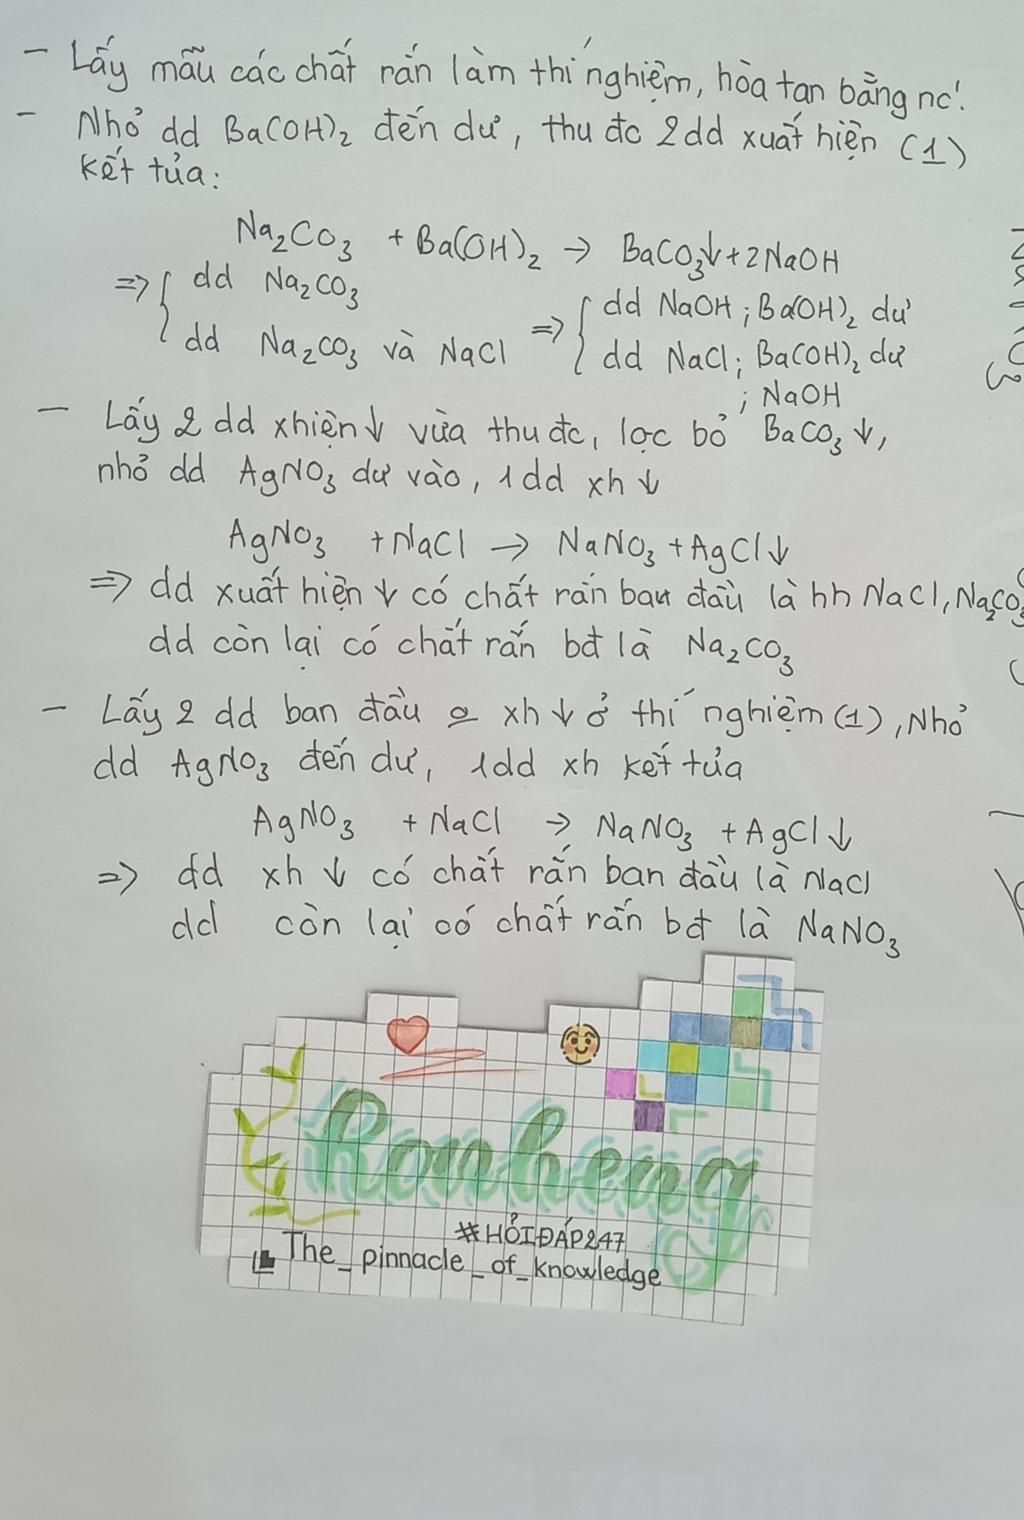 - Lấy mẫu các chất rắn làm thí nghiệm, hòa tan bằng nc'.
- Nhỏ dd Ba(OH)₂ đến dư, thu đc 2dd xuất hiện (1)
kết tủa:
Na₂CO₃ + Ba(OH)₂ → BaCO₃↓ + 2NaOH
=> { dd Na₂CO₃
dd Na₂CO₃ và NaCl
=> { dd NaOH ; Ba(OH)₂ dư
dd NaCl; Ba(OH)₂ dư
; NaOH
- Lấy 2 dd xhiện↓ vừa thu đc, lọc bỏ BaCO₃↓,
nhỏ dd AgNO₃ dư vào, 1dd xh ↓
AgNO₃ + NaCl → NaNO₃ + AgCl↓
=> dd xuất hiện ↓ có chất rắn ban đầu là hh NaCl, Na₂CO₃
dd còn lại có chất rắn bđ là Na₂CO₃
- Lấy 2 dd ban đầu xh↓ ở thí nghiệm (1), Nhỏ
dd AgNO₃ đến dư, 1dd xh kết tủa
AgNO₃ + NaCl → NaNO₃ + AgCl↓
=> dd xh ↓ có chất rắn ban đầu là NaCl
dd còn lại có chất rắn bđ là NaNO₃
#HỎIĐÁP247
The_pinnacle_of_knowledge